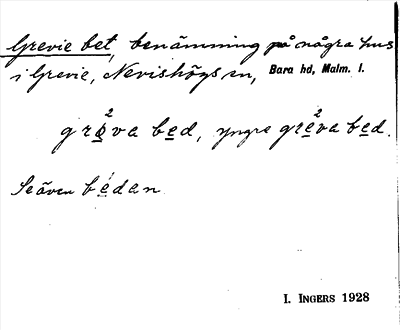 Grevie bet, benämning på några hus
i Grevie, Nevishögs sn, Bara hd, Malm. l.
grø̱²va be̱d, yngre gre̱²va be̱d.
Se även bé̱dan
I. INGERS 1928